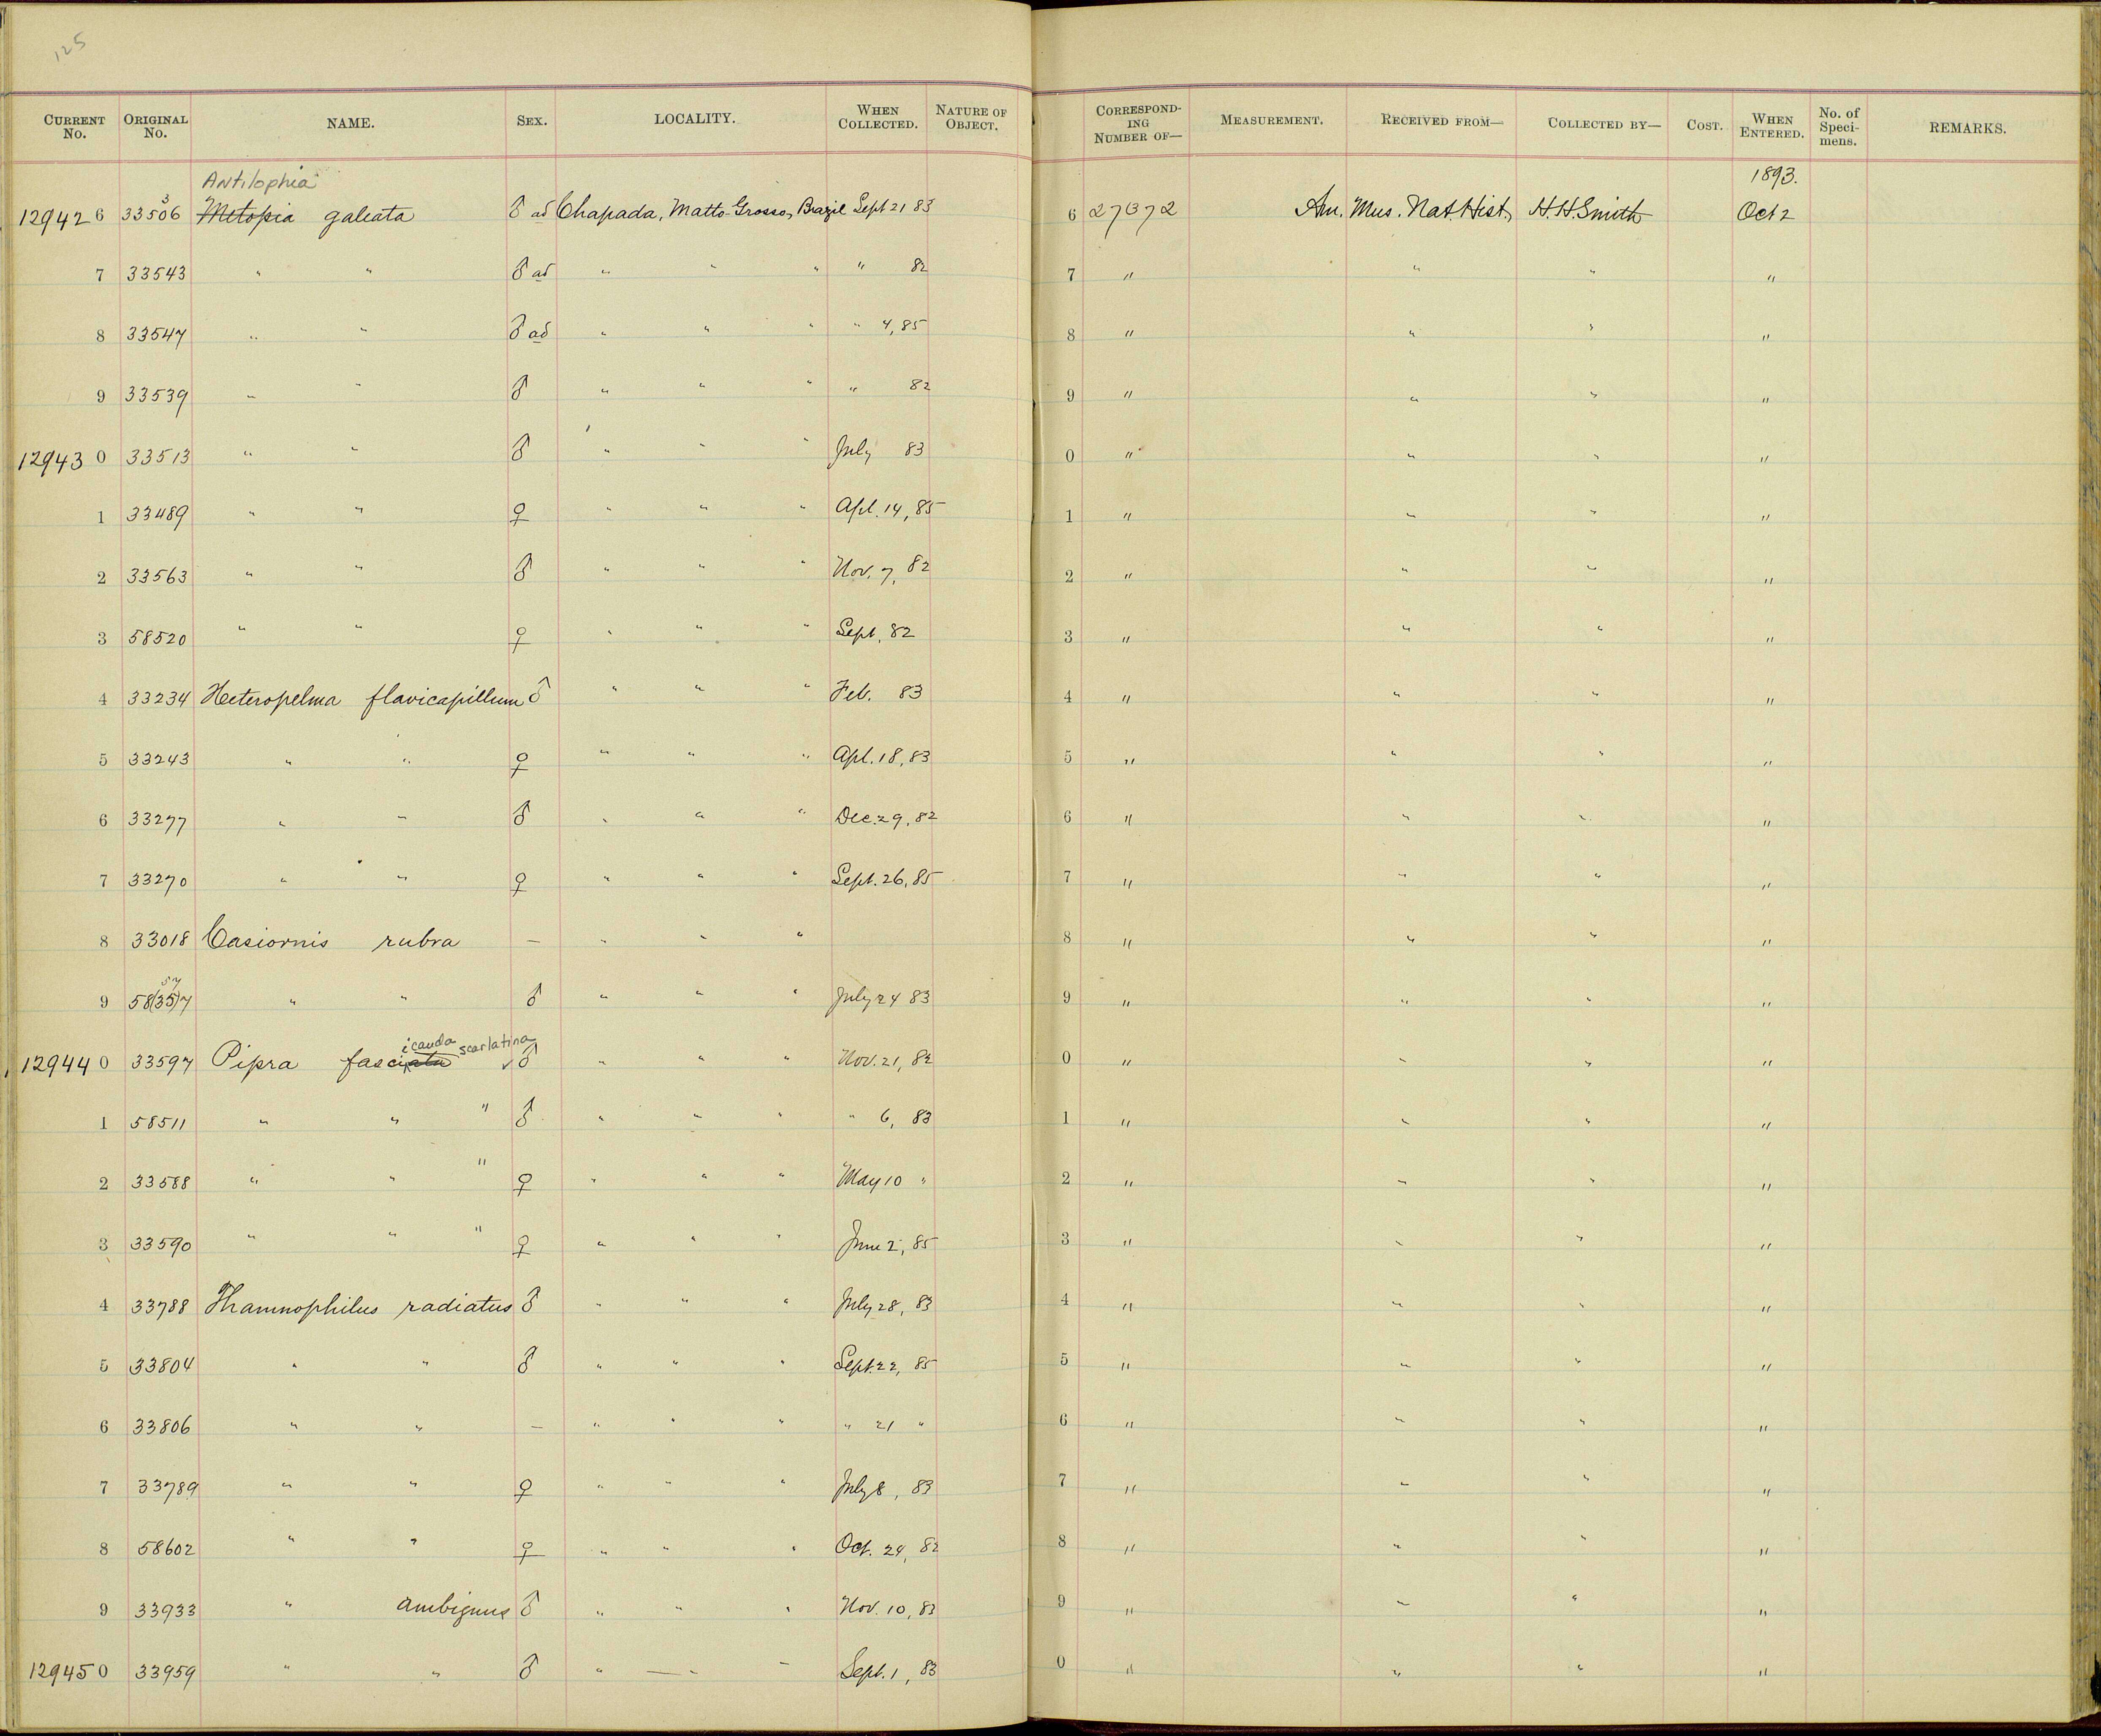 125
CURRENT No. ORIGINAL No. NAME. SEX. LOCALITY. WHEN COLLECTED. NATURE OF OBJECT. CORRESPONDING NUMBER OF— MEASUREMENT. RECEIVED FROM— COLLECTED BY— COST. WHEN ENTERED. No. of Specimens. REMARKS.
Antilophia 1893.
12942 6 33506 3 Metopia galeata ♂ ad Chapada, Matto-Grosso, Brazil Sept 21 83 6 27372 Am. Mus. Nat. Hist., H.H. Smith Oct 2
7 33543 " " ♂ ad " " " " 82 7 " " " "
8 33547 " " ♂ ad " " " " 4, 85 8 " " " "
9 33539 " " ♂ " " " " 82 9 " " " "
12943 0 33513 " " ♂ " " " July 83 0 " " " "
1 33489 " " ♀ " " " Apl. 14, 85 1 " " " "
2 33563 " " ♂ " " " Nov. 7, 82 2 " " " "
3 58520 " " ♀ " " " Sept. 82 3 " " " "
4 33234 Heteropelma flavicapillum ♂ " " " Feb. 83 4 " " " "
5 33243 " " ♀ " " " Apl. 18, 83 5 " " " "
6 33277 " " ♂ " " " Dec. 29, 82 6 " " " "
7 33270 " " ♀ " " " Sept. 26, 85 7 " " " "
8 33018 Casiornis rubra — " " " 8 " " " "
57
9 58(35)7 " " ♂ " " " July 24 83 9 " " " "
icauda scarlatina
12944 0 33597 Pipra fasciata ✓ ♂ " " " Nov. 21, 82 0 " " " "
1 58511 " " " ♂ " " " " 6, 83 1 " " " "
2 33588 " " " ♀ " " " May 10 " 2 " " " "
3 33590 " " " ♀ " " " June 2, 85 3 " " " "
4 33788 Thamnophilus radiatus ♂ " " " July 28, 83 4 " " " "
5 33804 " " ♂ " " " Sept. 22, 85 5 " " " "
6 33806 " " — " " " " 21 " 6 " " " "
7 33789 " " ♀ " " " July 8, 83 7 " " " "
8 58602 " " ♀ " " " Oct. 24, 82 8 " " " "
9 33933 " ambiguus ♂ " " " Nov. 10, 83 9 " " " "
12945 0 33959 " " ♂ " — " — Sept. 1, 83 0 " " " "